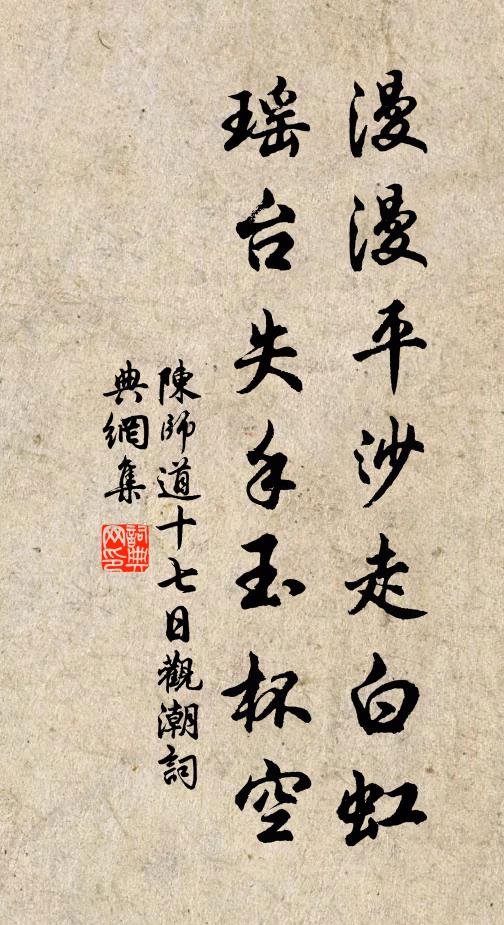 漫漫平沙走白虹
瑶台失手玉杯空
陳師道十七日觀潮詞
典網集
詞典
网印